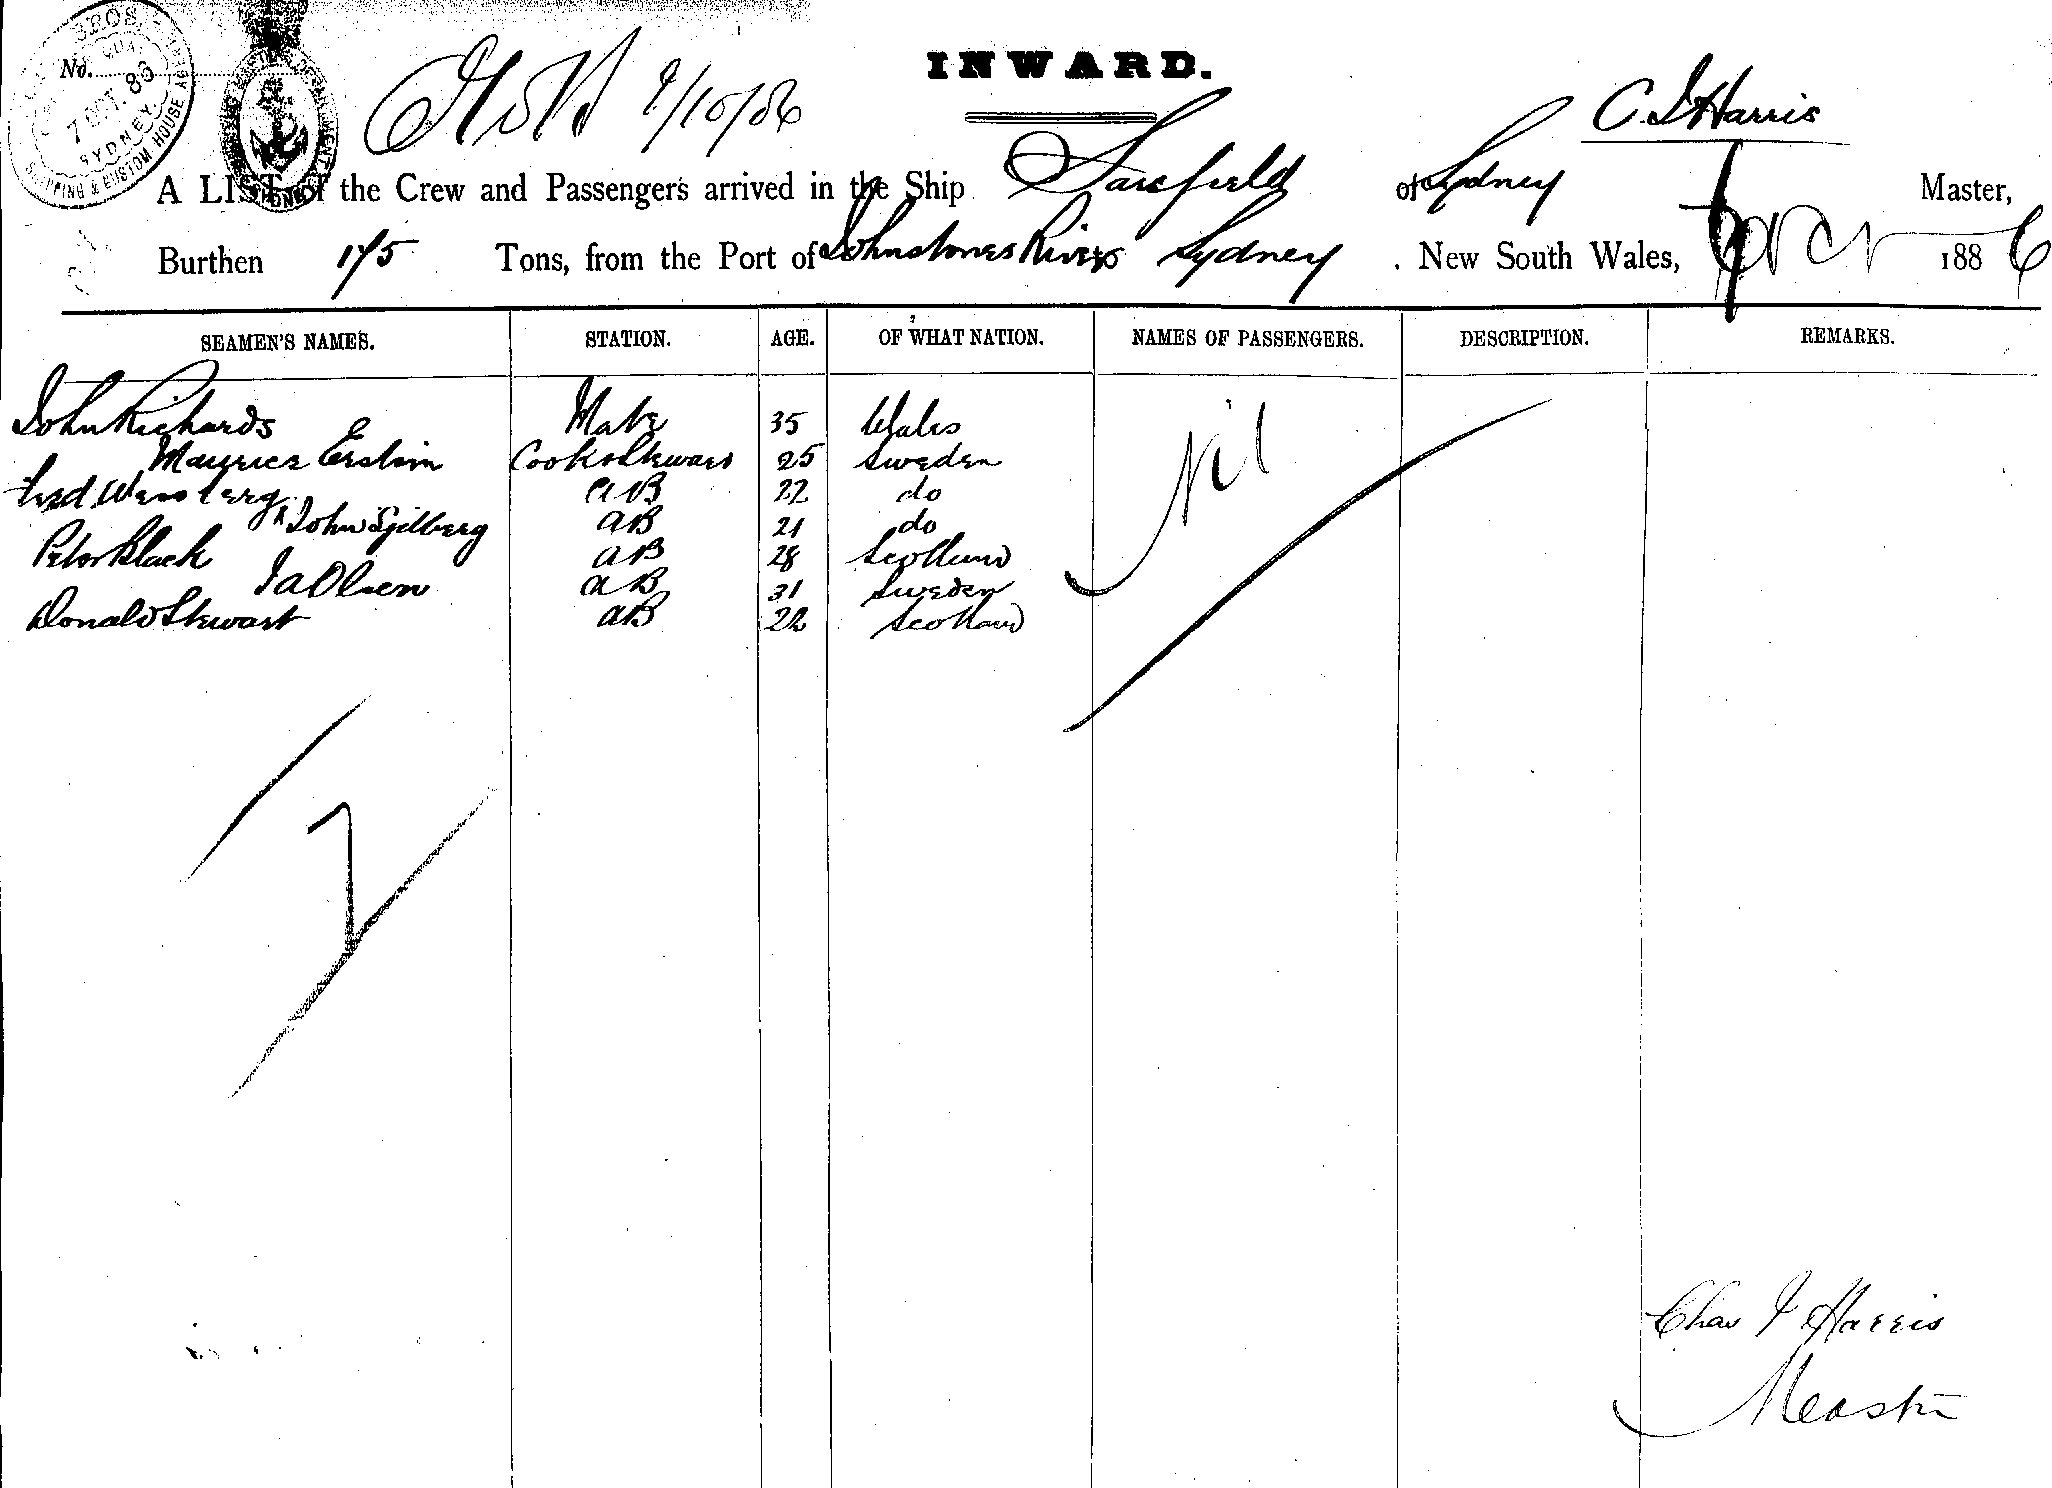 BROS.
No.
7 OCT. 86
SYDNEY
SHIPPING & CUSTOM HOUSE AGENTS
INWARD.
C. I Harris
A LIST of the Crew and Passengers arrived in the Ship of Sydney Master,
Burthen 175 Tons, from the Port of Johnstones River Sydney . New South Wales, Oct 1886
SEAMEN'S NAMES. STATION. AGE. OF WHAT NATION. NAMES OF PASSENGERS. DESCRIPTION. REMARKS.
John Richards Mate 35 Wales Nil
Maurice Cook & Steward 25 Sweden
AB 22 do
John AB 21 do
Peter Black AB 28 Scotland
Ja Olsen AB 31 Sweden
Donald Stewart AB 22 Scotland
7
Chas I Harris
Master